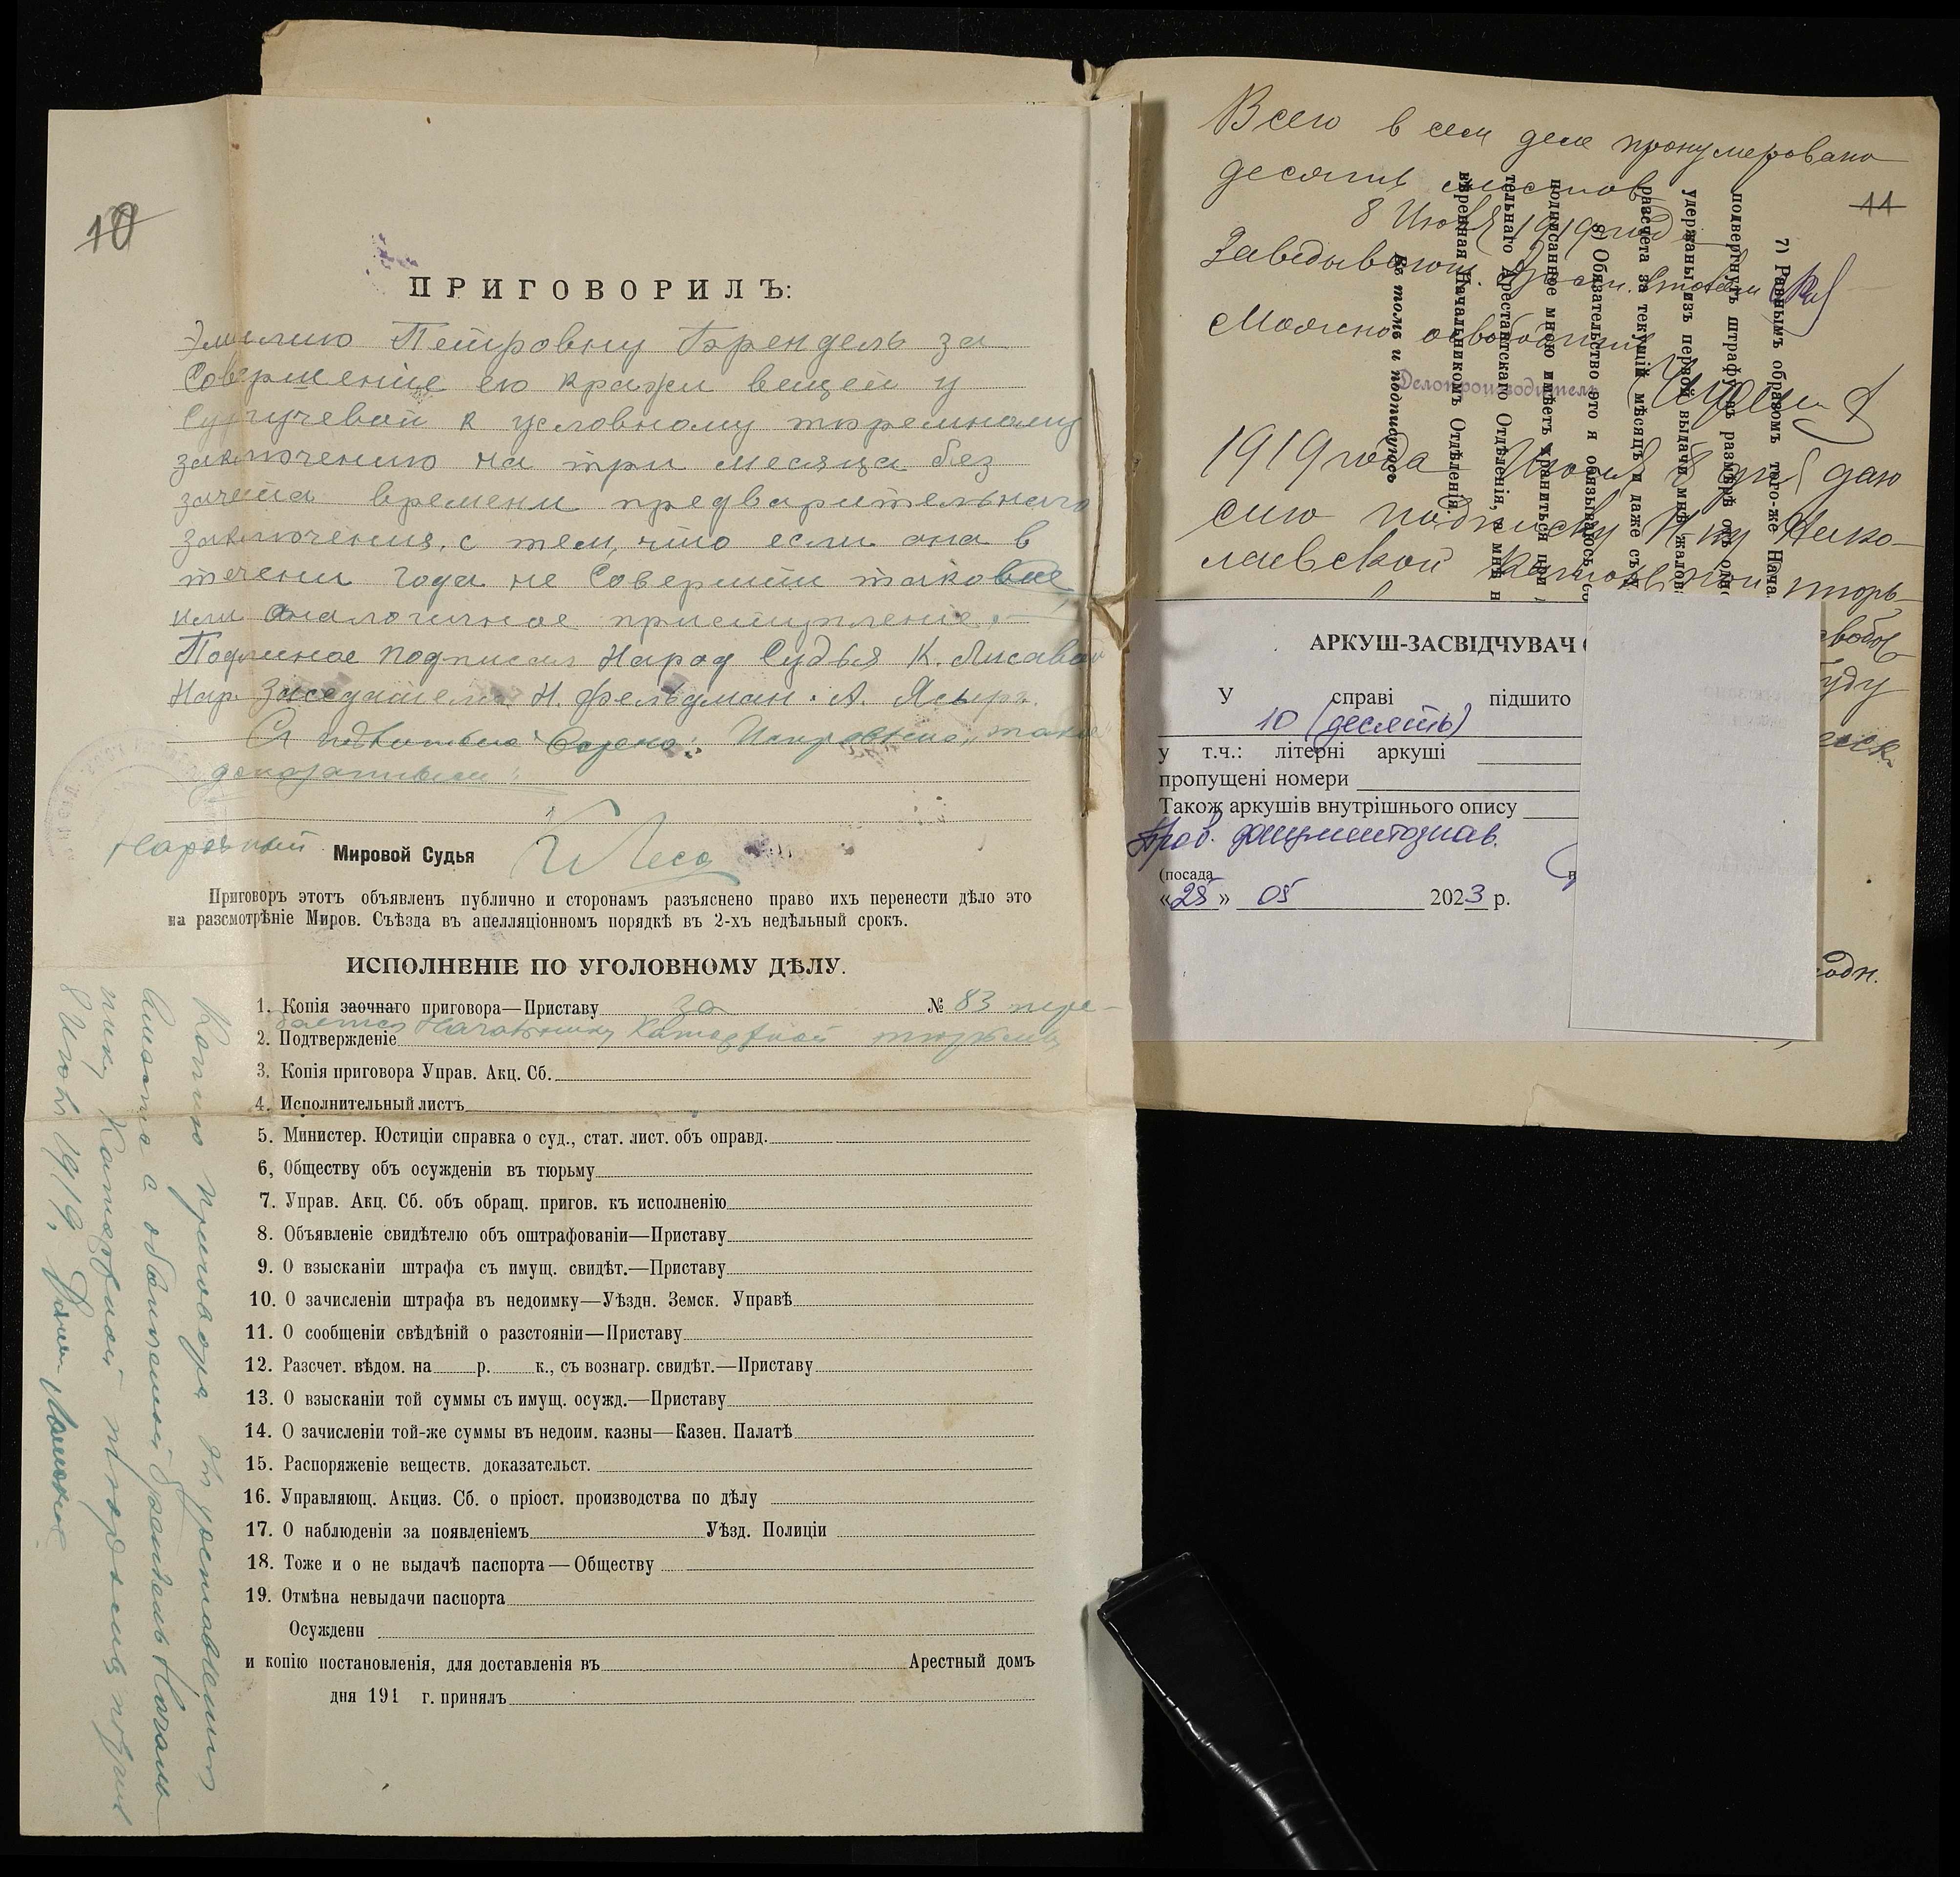 10
ПРИГОВОРИЛЪ:
Эмилию Петровну Брендель за
совершение ею кражи вещей у
Сургучевой к условному тюремному
заключению на три месяца без
зачета времени предварительного
заключения, с тем, что если она в
течени года не совершит таковое
или аналогичное приступление.
Подлиное подписал Народ Судья К. Лисавой
Нар Заседатели Н. Фельдман. А. Ясыр.
С подлинным верно: Исправлено
Народный Мировой Судья
Приговоръ этотъ объявленъ публично и сторонамъ разъяснено право ихъ перенести дѣло это
на разсмотрѣніе Миров. Съѣзда въ апелляціонномъ порядкѣ въ 2-хъ недѣльный срокъ.
ИСПОЛНЕНІЕ ПО УГОЛОВНОМУ ДѢЛУ.
1. Копія заочнаго приговора—Приставу за № 83 пере-
дается Начальнику Каторжной тюрьмы
2. Подтвержденіе
3. Копія приговора Управ. Акц. Сб.
4. Исполнительный листъ
5. Министер. Юстиціи справка о суд., стат. лист. объ оправд.
6, Обществу объ осужденіи въ тюрьму
7. Управ. Акц. Сб. объ обращ. пригов. къ исполненію
8. Объявленіе свидѣтелю объ оштрафованіи—Приставу
9. О взысканіи штрафа съ имущ. свидѣт.—Приставу
10. О зачисленіи штрафа въ недоимку—Уѣздн. Земск. Управѣ
11. О сообщеніи свѣдѣній о разстояніи—Приставу
12. Разсчет. вѣдом. на р. к., съ вознагр. свидѣт.—Приставу
13. О взысканіи той суммы съ имущ. осужд.—Приставу
14. О зачисленіи той-же суммы въ недоим. казны—Казен. Палатѣ
15. Распоряженіе веществ. доказательст.
16. Управляющ. Акциз. Сб. о пріост. производства по дѣлу
17. О наблюденіи за появленіемъ Уѣзд. Полиціи
18. Тоже и о не выдачѣ паспорта—Обществу
19. Отмѣна невыдачи паспорта
Осужденн
и копію постановленія, для доставленія въ Арестный домъ
дня 191 г. принялъ
Копию приговора для препровождения
Брендель Началь-
нику Каторжной тюрьмы получил
8 Июля 1919,
Всего в сем деле пронумеровано
десять листов
8 Июля 1919 года
Заведывающ.
11
Можно освободить
Делопроизводитель
1919 года Июля 8 дня даю
сию подписку Н-ку Нико-
лаевской Каторжной тюрь-
7) Равнымъ образомъ того-же Нача
подвергнуть штрафу въ размѣрѣ отъ одн
удержаны изъ первой выдачи мнѣ жалов
разсчета за текущій мѣсяцъ и даже съ у
8) Обязательство это я обязываюсь со
подписанное мною имѣетъ храниться при
тельнаго Арестантскаго Отдѣленія, а мнѣ н
вѣренная Начальникомъ Отдѣленія.
Въ томъ и подписуюсь
АРКУШ-ЗАСВІДЧУВАЧ
У справі підшито
10 (десять)
у т.ч.: літерні аркуші
пропущені номери
Також аркушів внутрішнього опису
Пров. документознав.
(посада
«25» 05 2023 р.